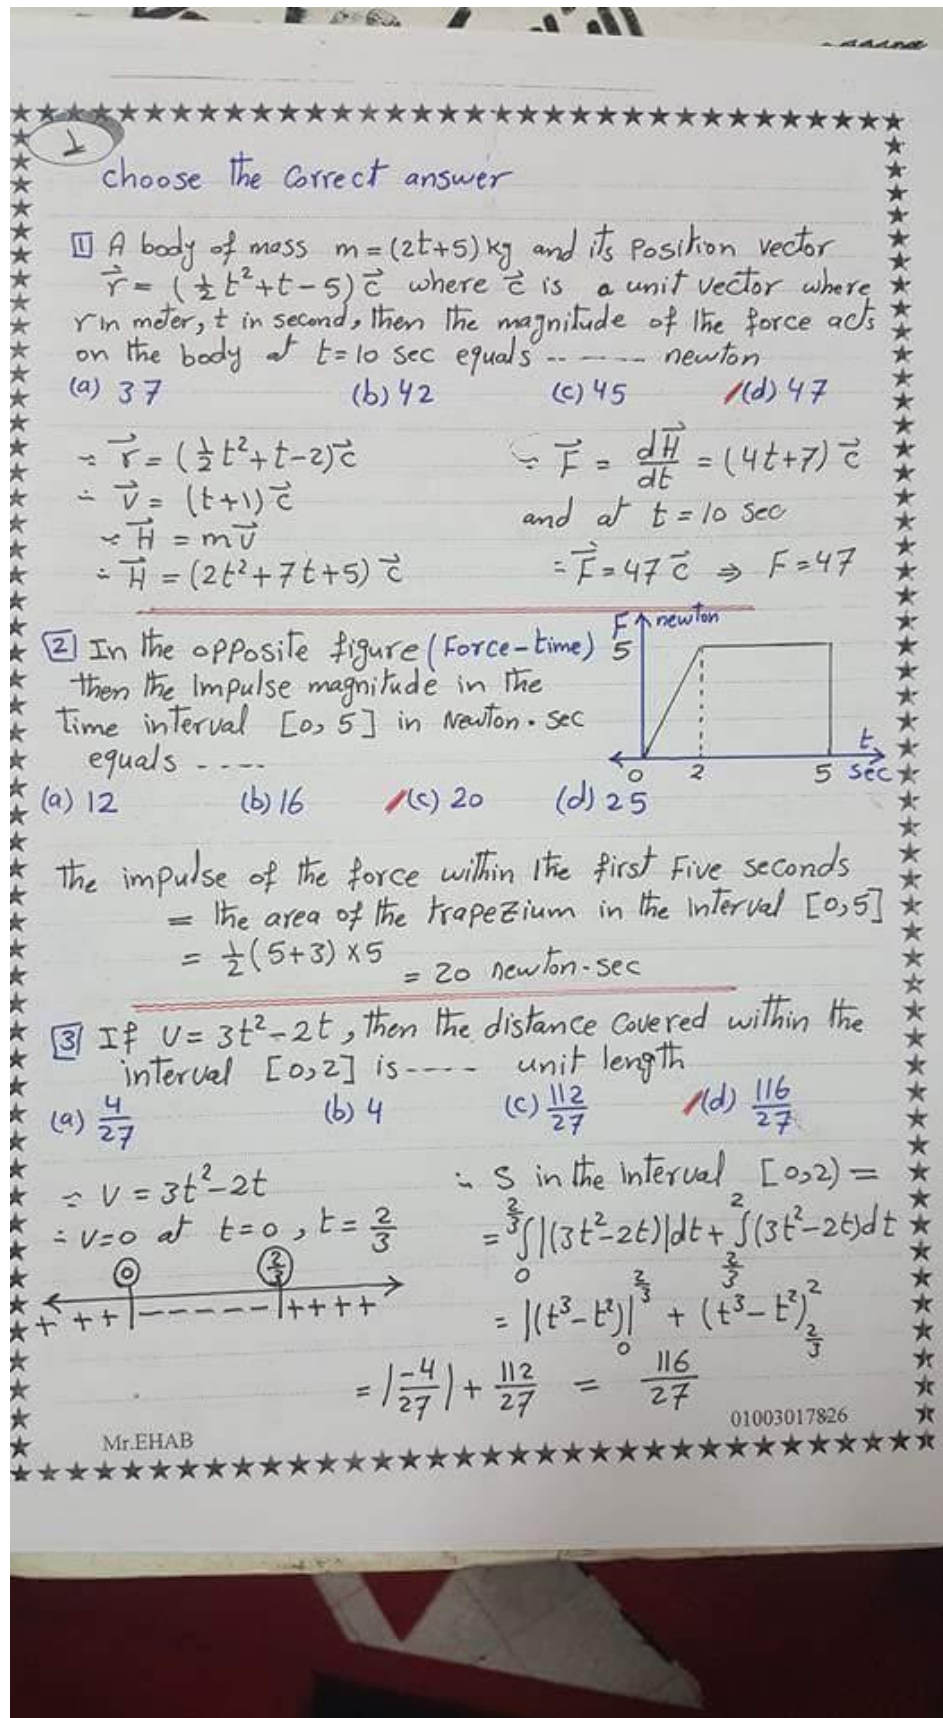 1
choose the correct answer
1 A body of mass m = (2t+5) kg and its position vector
r⃗ = (½ t² + t − 5) c⃗ where c⃗ is a unit vector where
r in meter, t in second, then the magnitude of the force acts
on the body at t = 10 sec equals -- ---- newton
(a) 37 (b) 42 (c) 45 (d) 47
∵ r⃗ = (½ t² + t − 2) c⃗
∴ v⃗ = (t+1) c⃗
∵ H⃗ = m v⃗
∴ H⃗ = (2t² + 7t + 5) c⃗
∵ F⃗ = dH⃗/dt = (4t+7) c⃗
and at t = 10 sec
∴ F⃗ = 47 c⃗ ⇒ F = 47
2 In the opposite figure (Force-time)
then the Impulse magnitude in the
time interval [0, 5] in Newton . sec
equals ----
F newton
5
t
0 2 5 sec
(a) 12 (b) 16 (c) 20 (d) 25
the impulse of the force within the first Five seconds
= the area of the trapezium in the interval [0,5]
= ½ (5+3) × 5
= 20 newton.sec
3 If V = 3t² − 2t, then the distance covered within the
interval [0,2] is ---- unit length
(a) 4/27 (b) 4 (c) 112/27 (d) 116/27
∵ V = 3t² − 2t
∴ v=0 at t=0, t = 2/3
0 2/3
+ + + ------ + + + +
∴ S in the interval [0,2) =
= ∫₀^(2/3) |(3t² − 2t)| dt + ∫_(2/3)^2 (3t² − 2t) dt
= |(t³ − t²)|₀^(2/3) + (t³ − t²)_(2/3)^2
= |−4/27| + 112/27 = 116/27
01003017826
Mr.EHAB